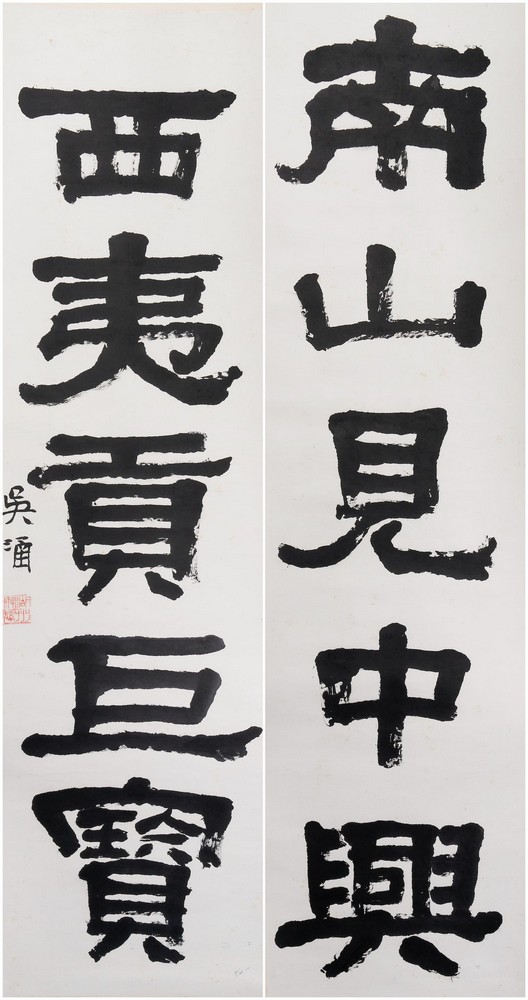 南山見中興
西夷貢巨寶
吳涵